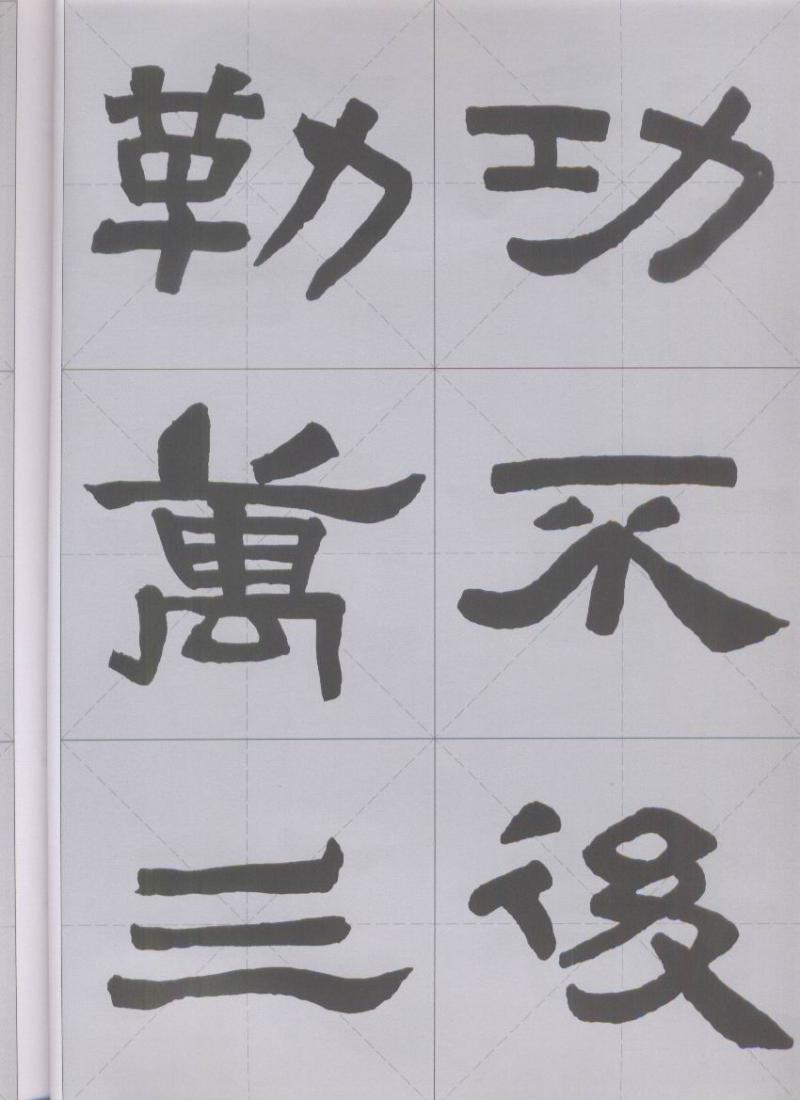 功不後
勒萬三